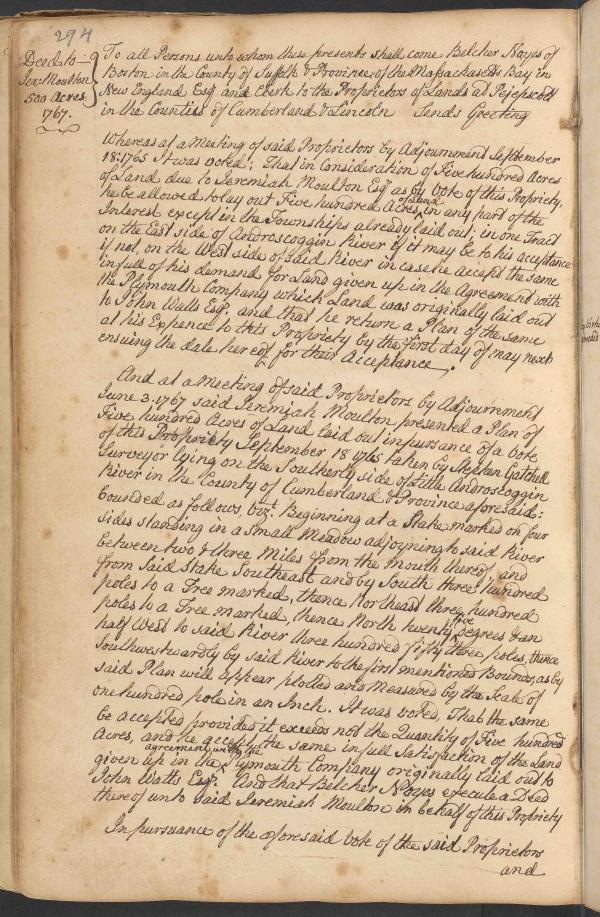 294
Deed to
Jer: Moulton
500 Acres
1767.
To all Persons unto whom these presents shall come Belcher Noyes of
Boston in the County of Suffolk & Province of the Massachusetts Bay in
New England Esqr and Clerk to the Proprietors of Lands at Pejepscott
in the Counties of Cumberland & Lincoln Sends Greeting
Whereas at a Meeting of said Proprietors by Adjournment September
18: 1765 It was voted; That in Consideration of Five hundred Acres
of Land due to Jeremiah Moulton Esqr as by vote of this Propriety,
he be allowed to lay out Five hundred Acres of Land in any part of the
Interest except in the Townships already laid out; in one Tract
on the East side of Androscoggin River if it may be to his acceptance
if not, on the West side of said River in case he accept the same
in full of his demand for Land given up in the Agreement with
the Plymouth Company which Land was originally laid out
to John Watts Esqr. and that he return a Plan of the same
at his Expence to this Propriety by the first day of may next
ensuing the date hereof, for their Acceptance.
And at a Meeting of said Proprietors by Adjournment
June 3. 1767 said Jeremiah Moulton presented a Plan of
Five hundred Acres of Land laid out in pursuance of a vote
of this Propriety September 18 1765 taken by Stephen Gatchell
Surveyor lying on the Southerly side of Little Androscoggin
River in the County of Cumberland & Province aforesaid:
bounded as follows, vizt. Beginning at a Stake marked on four
sides standing in a small Meadow adjoyning to said River
between two & three Miles from the mouth thereof, and
from said Stake Southeast and by South three hundred
poles to a Tree marked, thence Northeast three hundred
poles to a Tree marked, thence North twenty five degrees & an
half West to said River three hundred fifty three poles, thence
Southwestwardly by said River to the first mentioned Bounds, as by
said Plan will appear plotted and Measured by the Scale of
one hundred pole in an Inch. It was voted, That the same
be accepted provided it exceeds not the Quantity of Five hundred
Acres, and he accepts the same in full Satisfaction of the Land
given up in the agreement with the Plymouth Company originally laid out to
John Watts Esqr. And that Belcher Noyes execute a Deed
thereof unto said Jeremiah Moulton in behalf of this Propriety
In pursuance of the aforesaid vote of the said Proprietors
and